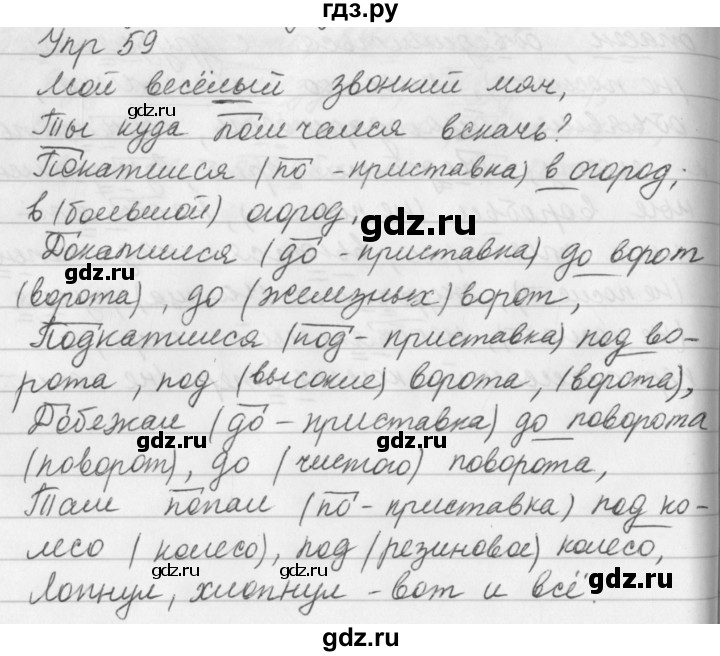 гдз.ру
Упр 59
Мой весёлый звонкий мяч,
gdz.ru gdz.ru
Ты куда помчался вскачь?
Покатился (по - приставка) в огород;
в (большой) огород,
gdz.ru gdz.ru
Докатился (до - приставка) до ворот
gdz.ru
(ворота), до (железных) ворот,
Подкатился (под - приставка) под во-
gdz.ru
рота, под (высокие) ворота, (ворота),
Добежал (до - приставка) до поворота
gdz.ru gdz.ru
(поворот), до (чистого) поворота,
Там попал (по - приставка) под ко-
gdz.ru
лесо (колесо), под (резиновое) колесо,
gdz.ru gdz.ru
Лопнул, хлопнул - вот и всё.
gdz.ru